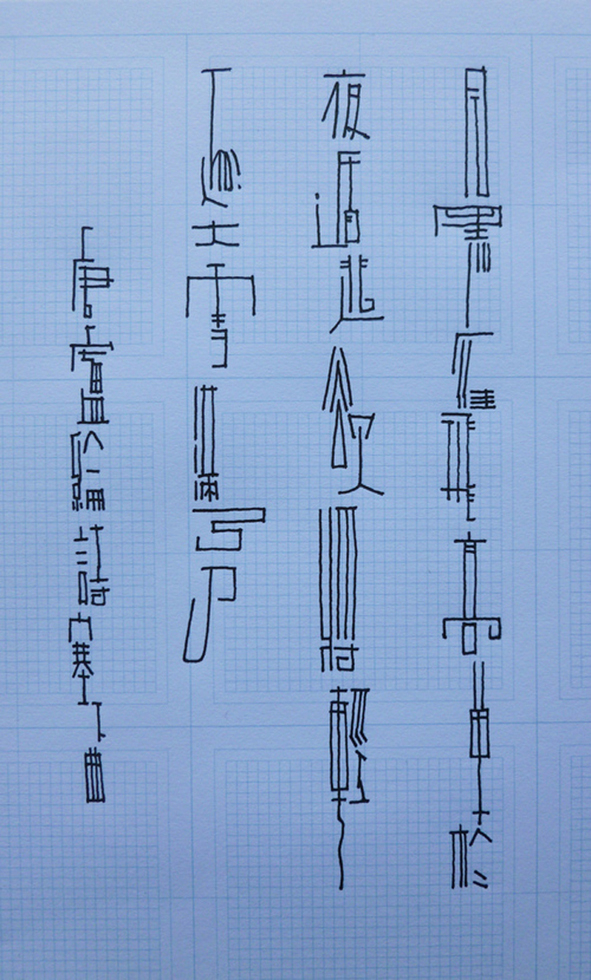 月黑雁飛高單於
夜遁逃欲將輕
逐大雪滿弓刀
唐盧綸詩塞下曲